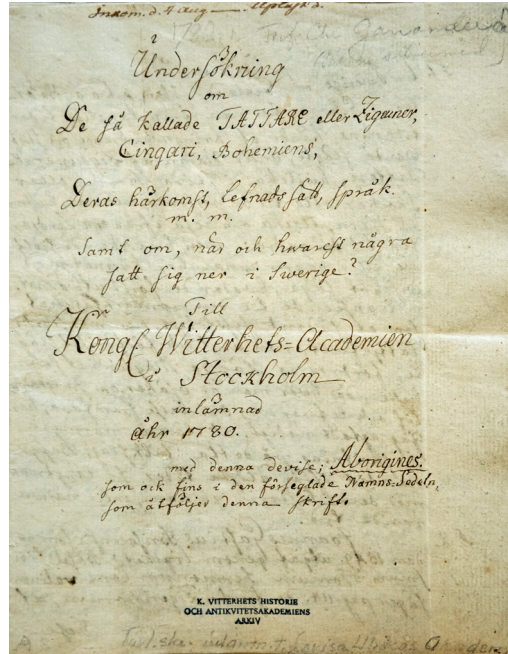 Inkom. d. 4 Aug
i
Undersökning
om
De så kallade TATTARE eller Zigeuner,
Cingari, Bohemiens,
Deras härkomst, lefnadssätt, språk.
m. m.
Samt om, när och hwarest några
satt sig ner i Swerige?
Till
Kongl Witterhets=Academien
i Stockholm
inlämnad
åhr 1780.
med denna devise; Aborigines.
som ock fins i den förseglade Namns=Sedeln,
som åtföljer denna skrift.
K. VITTERHETS HISTORIE
OCH ANTIKVITETSAKADEMIENS
ARKIV